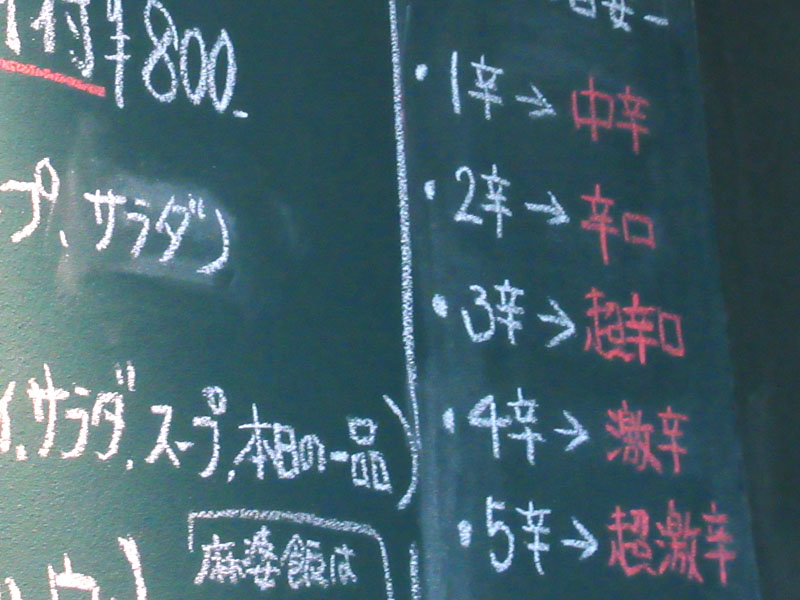 付¥800
プ、サラダ)
サラダ、スープ、本日の一品)
麻婆飯は
・1辛→中辛
・2辛→辛口
・3辛→超辛口
・4辛→激辛
・5辛→超激辛